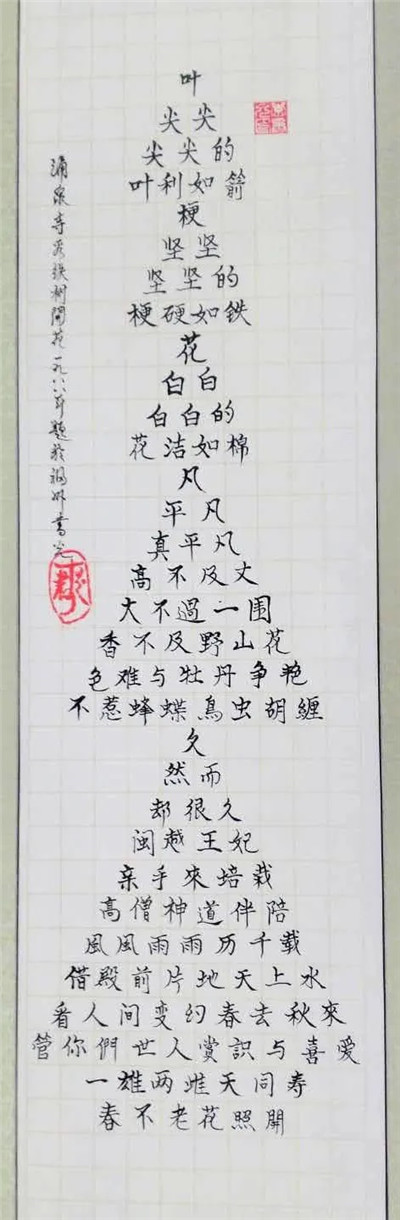 叶
尖尖
尖尖的
叶利如箭
梗
坚坚
坚坚的
梗硬如鉄
花
白白
白白的
花洁如棉
凡
平凡
真平凡
高不及丈
大不過一围
香不及野山花
色难与牡丹争艳
不惹蜂蝶鳥虫胡纏
久
然而
却很久
闽越王妃
亲手來培栽
高僧神道伴陪
風風雨雨历千载
借殿前片地天上水
看人间变幻春去秋來
管你們世人赏識与喜爱
一雄两雌天同寿
春不老花照開
涌泉寺看铁树開花一九八八年題於福州